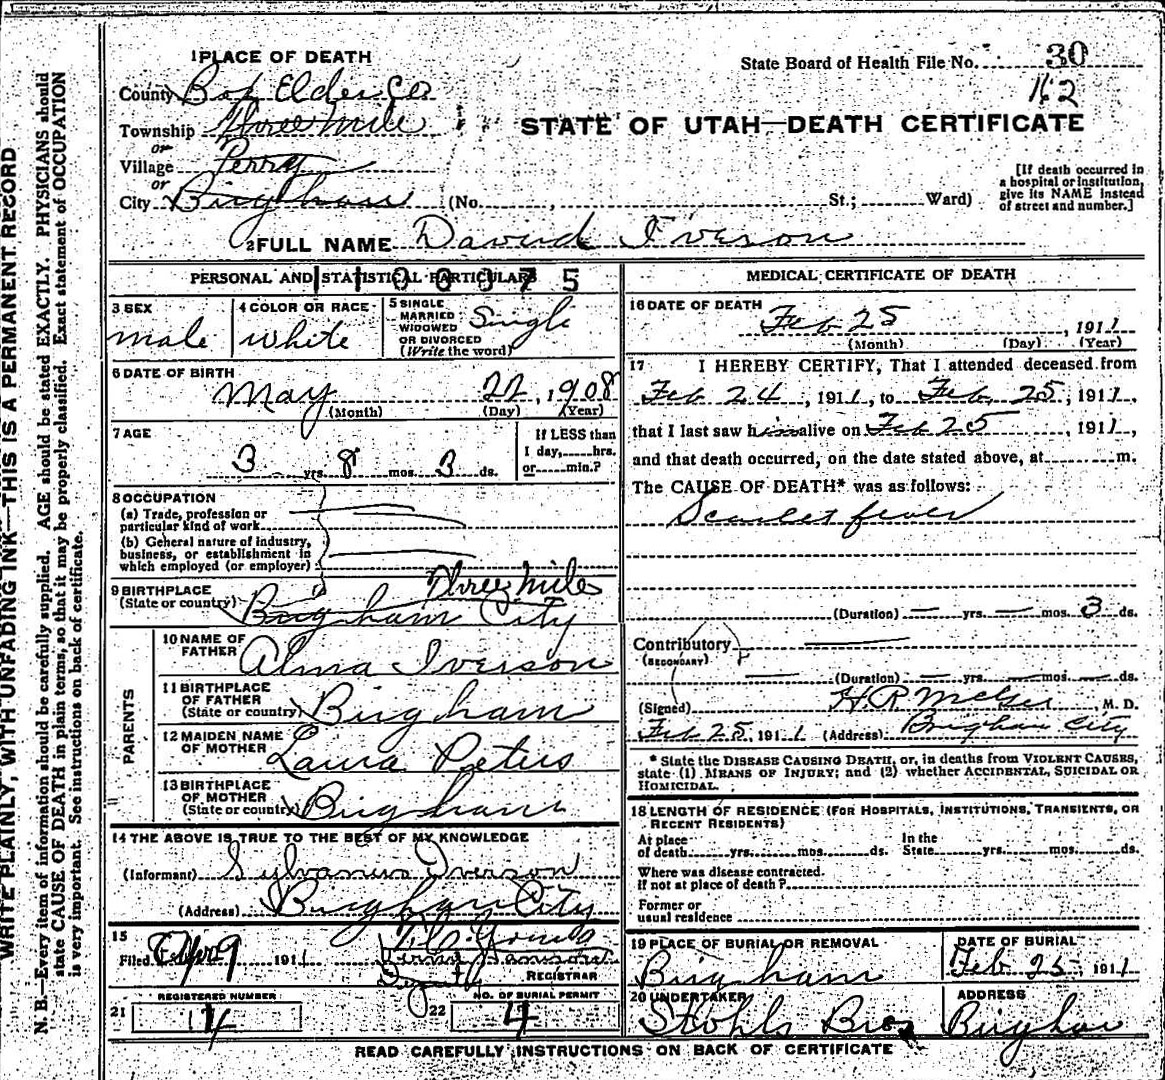 WRITE PLAINLY, WITH UNFADING INK—THIS IS A PERMANENT RECORD
N. B.—Every item of information should be carefully supplied. AGE should be stated EXACTLY. PHYSICIANS should
state CAUSE OF DEATH in plain terms, so that it may be properly classified. Exact statement of OCCUPATION
is very important. See instructions on back of certificate.
1 PLACE OF DEATH
State Board of Health File No. 30
162
County Box Elder Co
Township Three Mile
or
Village Perry
or
City Brigham (No. , St.; Ward)
STATE OF UTAH—DEATH CERTIFICATE
[If death occurred in
a hospital or institution,
give its NAME instead
of street and number.]
2 FULL NAME David Iverson
PERSONAL AND STATISTICAL PARTICULARS
1100375
3 SEX
male
4 COLOR OR RACE
white
5 SINGLE
MARRIED
WIDOWED
OR DIVORCED
(Write the word)
Single
6 DATE OF BIRTH
May 22, 1908
(Month) (Day) (Year)
7 AGE
3 yrs. 8 mos. 3 ds.
If LESS than
1 day, hrs.
or min.?
8 OCCUPATION
(a) Trade, profession or
particular kind of work
(b) General nature of industry,
business, or establishment in
which employed (or employer)
9 BIRTHPLACE
(State or country)
Three Mile
Brigham City
PARENTS
10 NAME OF
FATHER
Alma Iverson
11 BIRTHPLACE
OF FATHER
(State or country)
Brigham
12 MAIDEN NAME
OF MOTHER
Laura Peters
13 BIRTHPLACE
OF MOTHER
(State or country)
Brigham
14 THE ABOVE IS TRUE TO THE BEST OF MY KNOWLEDGE
(Informant) Sylvanus Iverson
(Address) Brigham City
15
Filed 9 1911
Deputy REGISTRAR
REGISTERED NUMBER
21 14
NO. OF BURIAL PERMIT
22 4
MEDICAL CERTIFICATE OF DEATH
16 DATE OF DEATH
Feb 25, 1911
(Month) (Day) (Year)
17 I HEREBY CERTIFY, That I attended deceased from
Feb 24, 1911, to Feb. 25, 1911,
that I last saw him alive on Feb 25, 1911,
and that death occurred, on the date stated above, at m.
The CAUSE OF DEATH* was as follows:
Scarlet fever
(Duration) — yrs. — mos. 3 ds.
Contributory
(SECONDARY)
(Duration) — yrs. — mos. ds.
(Signed) H. R. McGee M. D.
Feb 25, 1911 (Address) Brigham City
* State the DISEASE CAUSING DEATH, or, in deaths from VIOLENT CAUSES,
state (1) MEANS OF INJURY; and (2) whether ACCIDENTAL, SUICIDAL OR
HOMICIDAL.
18 LENGTH OF RESIDENCE (FOR HOSPITALS, INSTITUTIONS, TRANSIENTS, OR
RECENT RESIDENTS)
At place
of death yrs. mos. ds.
In the
State yrs. mos. ds.
Where was disease contracted.
If not at place of death?
Former or
usual residence
19 PLACE OF BURIAL OR REMOVAL
Brigham
DATE OF BURIAL
Feb 25 1911
20 UNDERTAKER
Stohls Bros
ADDRESS
Brigham
READ CAREFULLY INSTRUCTIONS ON BACK OF CERTIFICATE